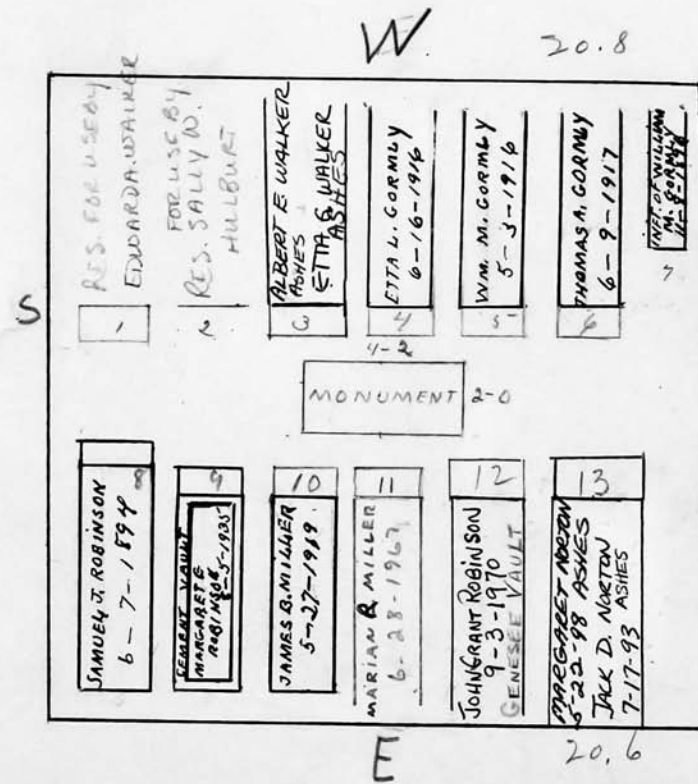 W.
20.8
RES. FOR USE BY
EDWARD A. WALKER
1
FOR USE BY
RES. SALLY W.
HULBURT
2
ALBERT E WALKER
ASHES
ETTA G. WALKER
ASHES
3
ETTA L. GORMLY
6-16-1916
4
WM. M. GORMLY
5-3-1916
5
THOMAS A. GORMLY
6-9-1917
6
INFT. OF WILLIAM
M. GORMLY
7
S
4-2
MONUMENT
2-0
8
SAMUEL J. ROBINSON
6-7-1894
9
SEMENT VAULT
MARGARET E
ROBINSON
10
JAMES B. MILLER
5-27-1969
11
MARIAN R. MILLER
6-28-1967
12
JOHN GRANT ROBINSON
9-3-1970
GENESEE VAULT
13
MARGARET NORTON
5-22-98 ASHES
JACK D. NORTON
7-17-93 ASHES
E
20.6